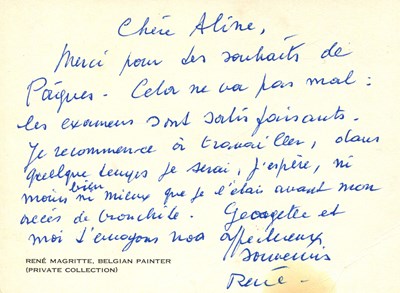 Chère Aline,
Merci pour tes souhaits de
Pâques - Cela ne va pas mal :
les examens sont satisfaisants.
Je recommence à travailler, dans
quelque temps je serai, j'espère, ni
moins bien ni mieux que je l'étais avant mon
accès de bronchite. Georgette et
moi t'envoyons nos affectueux
souvenirs
René -
RENÉ MAGRITTE, BELGIAN PAINTER
(PRIVATE COLLECTION)